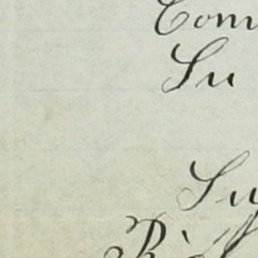 Com
Su
Su
Ri